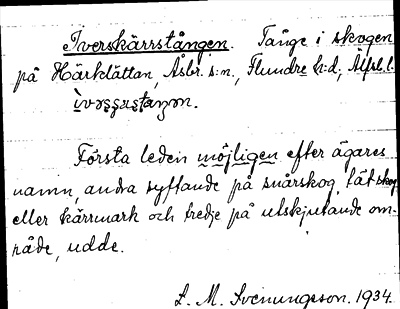 Iverskärrstången. Tånge i skogen
på Härklättan, Åsbr. s:n, Flundre h:d, Älfsb. l.
ìvǝṣṣastaŋǝn.
Första leden möjligen efter ägares
namn, andra syftande på snårskog, tät skog
eller kärrmark och tredje på utskjutande om-
råde, udde.
L. M. Svenungsson. 1934.